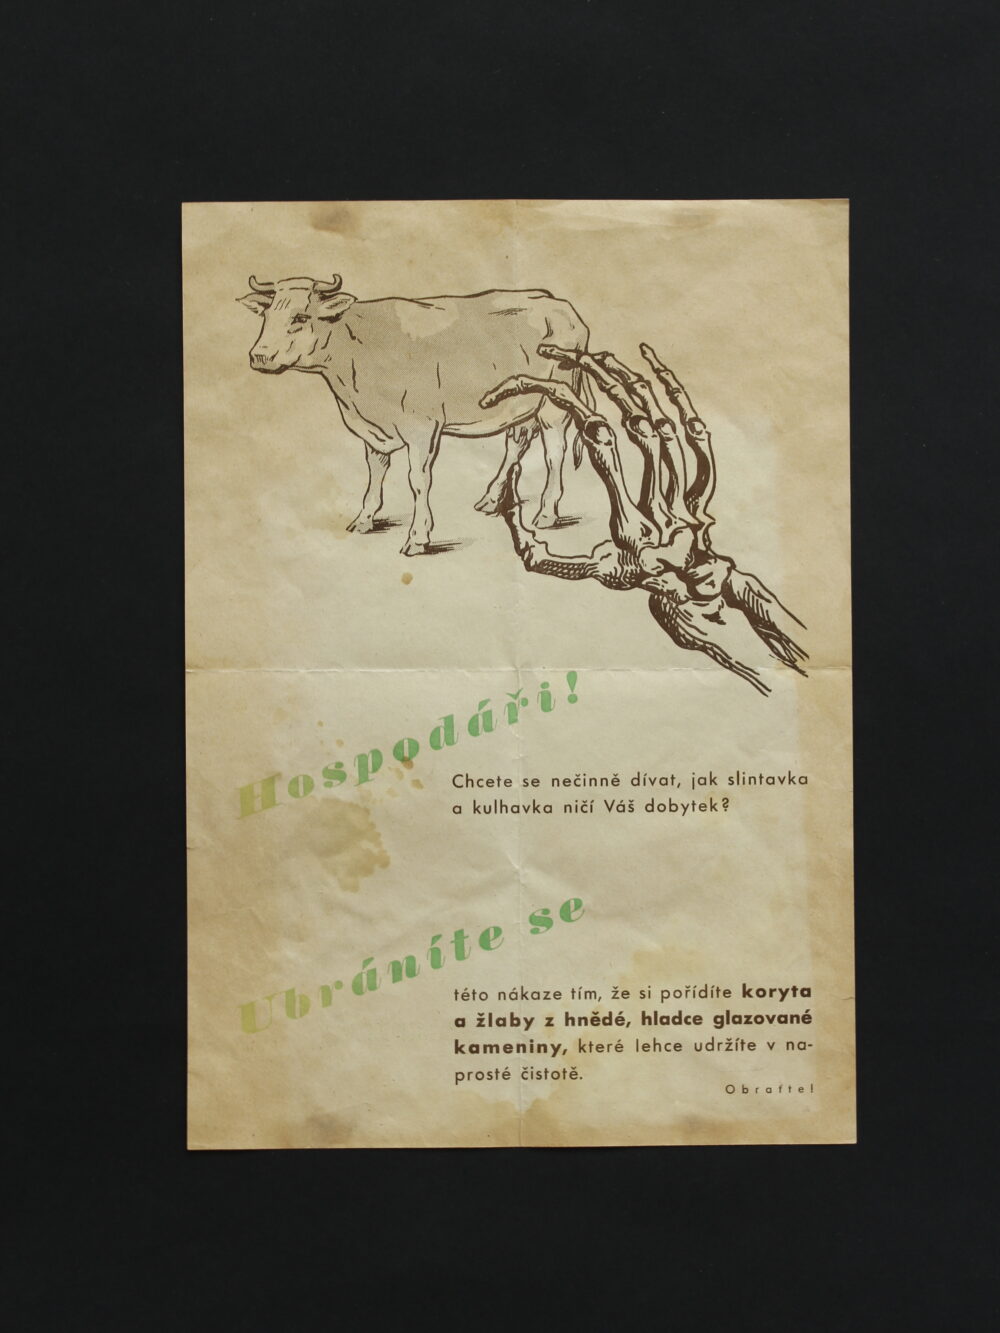 Hospodáři!
Chcete se nečinně dívat, jak slintavka
a kulhavka ničí Váš dobytek?
Ubráníte se
této nákaze tím, že si pořídíte koryta
a žlaby z hnědé, hladce glazované
kameniny, které lehce udržíte v na-
prosté čistotě.
Obraťte!